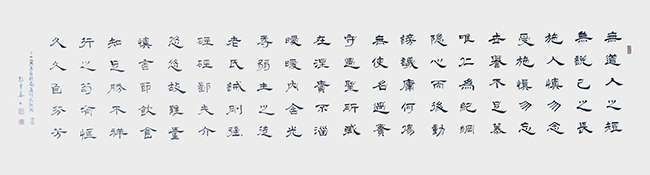 無道人之短
無說己之長
施人慎勿念
受施慎勿忘
世譽不足慕
唯仁為紀綱
隱心而後動
謗議庸何傷
無使名過實
守愚聖所臧
在涅貴不淄
曖曖內含光
柔弱生之徒
老氏誡剛強
硜硜鄙夫介
悠悠故難量
慎言節飲食
知足勝不祥
行之苟有恆
久久自芬芳